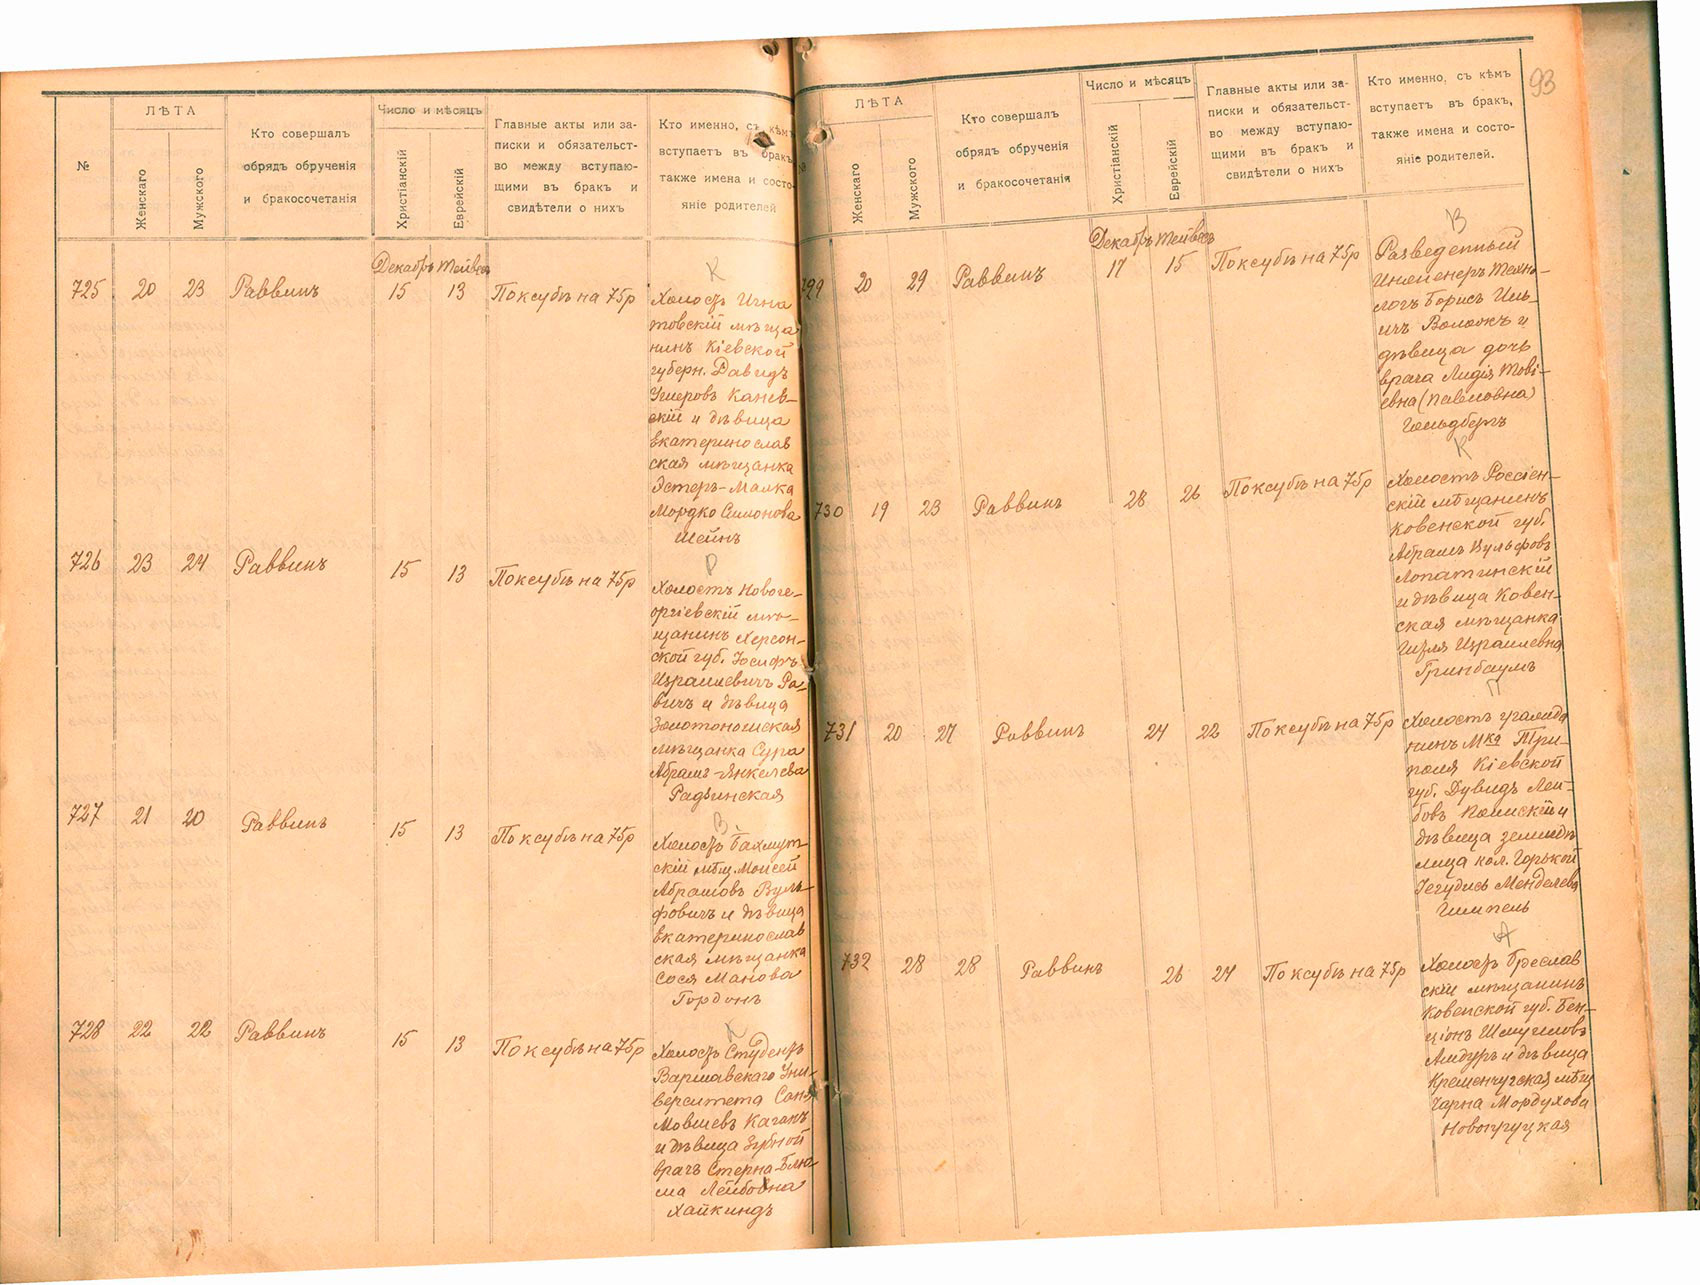 №
ЛѢТА
Женскаго
Мужского
Кто совершалъ
обрядъ обрученія
и бракосочетанія
Число и мѣсяцъ
Христіанскій
Еврейскій
Главные акты или за-
писки и обязательст-
во между вступаю-
щими въ бракъ и
свидѣтели о нихъ
Кто именно, съ кѣмъ
вступаетъ въ бракъ,
также имена и состо-
яніе родителей
Декабрь Тейвесъ
725 20 23 Раввинъ 15 13 По ксубѣ на 75р
К
Холостъ Игна
товскій мѣща
нинъ Кіевской
губерн. Давидъ
Умеровъ Канев-
скій и дѣвица
екатеринослав
ская мѣщанка
Эстеръ-Малка
Мордко Симонова
Шейнъ
726 23 24 Раввинъ 15 13 По ксубѣ на 75р
Р
Холостъ Новоге-
оргіевскій мѣ-
щанинъ Херсон-
ской губ. Іосифъ
Израилевичъ Ра-
вичъ и дѣвица
Золотоношская
мѣщанка Сура
Абрамъ-Янкелева
Радзинская
727 21 20 Раввинъ 15 13 По ксубѣ на 75р
В
Холостъ Бахмут
скій мѣщ. Моисей
Абрамовъ Вуль-
фовичъ и дѣвица
екатеринослав
ская мѣщанка
Сося Манова
Гордонъ
728 22 22 Раввинъ 15 13 По ксубѣ на 75р
К
Холостъ Студентъ
Варшавскаго Уни-
верситета Саня
Мовшевъ Каганъ
и дѣвица Зубной
врачъ Стерна-Блю-
ма Лейбовна
Хайкиндъ
93
№
ЛѢТА
Женскаго
Мужского
Кто совершалъ
обрядъ обрученія
и бракосочетанія
Число и мѣсяцъ
Христіанскій
Еврейскій
Главные акты или за-
писки и обязательст-
во между вступаю-
щими въ бракъ и
свидѣтели о нихъ
Кто именно, съ кѣмъ
вступаетъ въ бракъ,
также имена и состо-
яніе родителей.
Декабрь Тейвесъ
729 20 29 Раввинъ 17 15 По ксубѣ на 75р
В
Разведенный
Инженеръ Техно-
логъ Борисъ Иль-
ичъ Волокъ и
дѣвица дочь
врача Лидія Тові-
евна (Павловна)
Гольдбергъ
730 19 23 Раввинъ 28 26 По ксубѣ на 75р
К
Холостъ Россіен-
скій мѣщанинъ
Ковенской губ.
Абрамъ Вульфовъ
Лопатинскій
и дѣвица Ковен-
ская мѣщанка
Гизля Израилевна
Гринбаумъ
731 20 27 Раввинъ 24 22 По ксубѣ на 75р
П
Холостъ
нинъ Мка Три-
поля Кіевской
губ. Дувидъ Лей-
бовъ и
дѣвица землед
лица кол. Горькой
Іегудисъ Менделева
Гимпель
732 28 28 Раввинъ 26 24 По ксубѣ на 75р
А
Холостъ Бреслав
скій мѣщанинъ
Ковенской губ. Бен-
ціонъ Шмуиловъ
Амдуръ и дѣвица
Кременчугская мѣщ
Чарна Мордухова